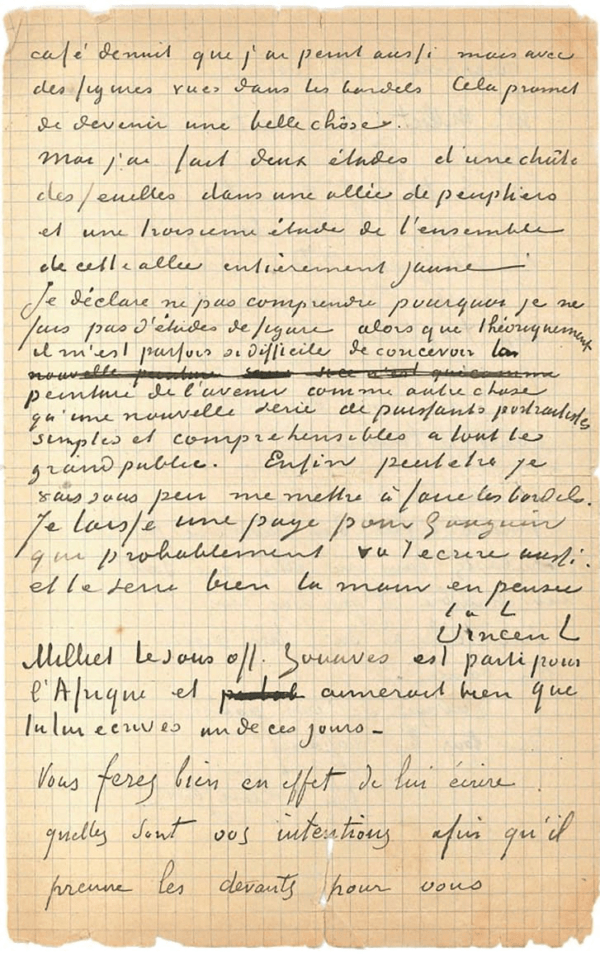 café de nuit que j'ai peint aussi mais avec
des figures vues dans les bordels Cela promet
de devenir une belle chôse.
Moi j'ai fait deux études d'une chûte
des feuilles dans une allée de peupliers
et une troisieme étude de l'ensemble
de cette allée entièrement jaune
Je déclare ne pas comprendre pourquoi je ne
fais pas d'études de figure alors que théoriquement
il m'est parfois si difficile de concevoir la
nouvelle peinture
peinture de l'avenir comme autre chose
qu'une nouvelle serie de puissants portraitistes
simples et comprehensibles a tout le
grand public. Enfin peutetre je
vais sous peu me mettre à faire les bordels.
Je laisse une page pour Gauguin
qui probablement va t'ecrire aussi.
et te serre bien la main en pensée
t à t
Vincent
Milliet le sous off. Zouaves est parti pour
l'Afrique et aimerait bien que
tu lui ecrives un de ces jours_
Vous ferez bien en effet de lui écrire
quelles sont vos intentions afin qu'il
prenne les devants pour vous